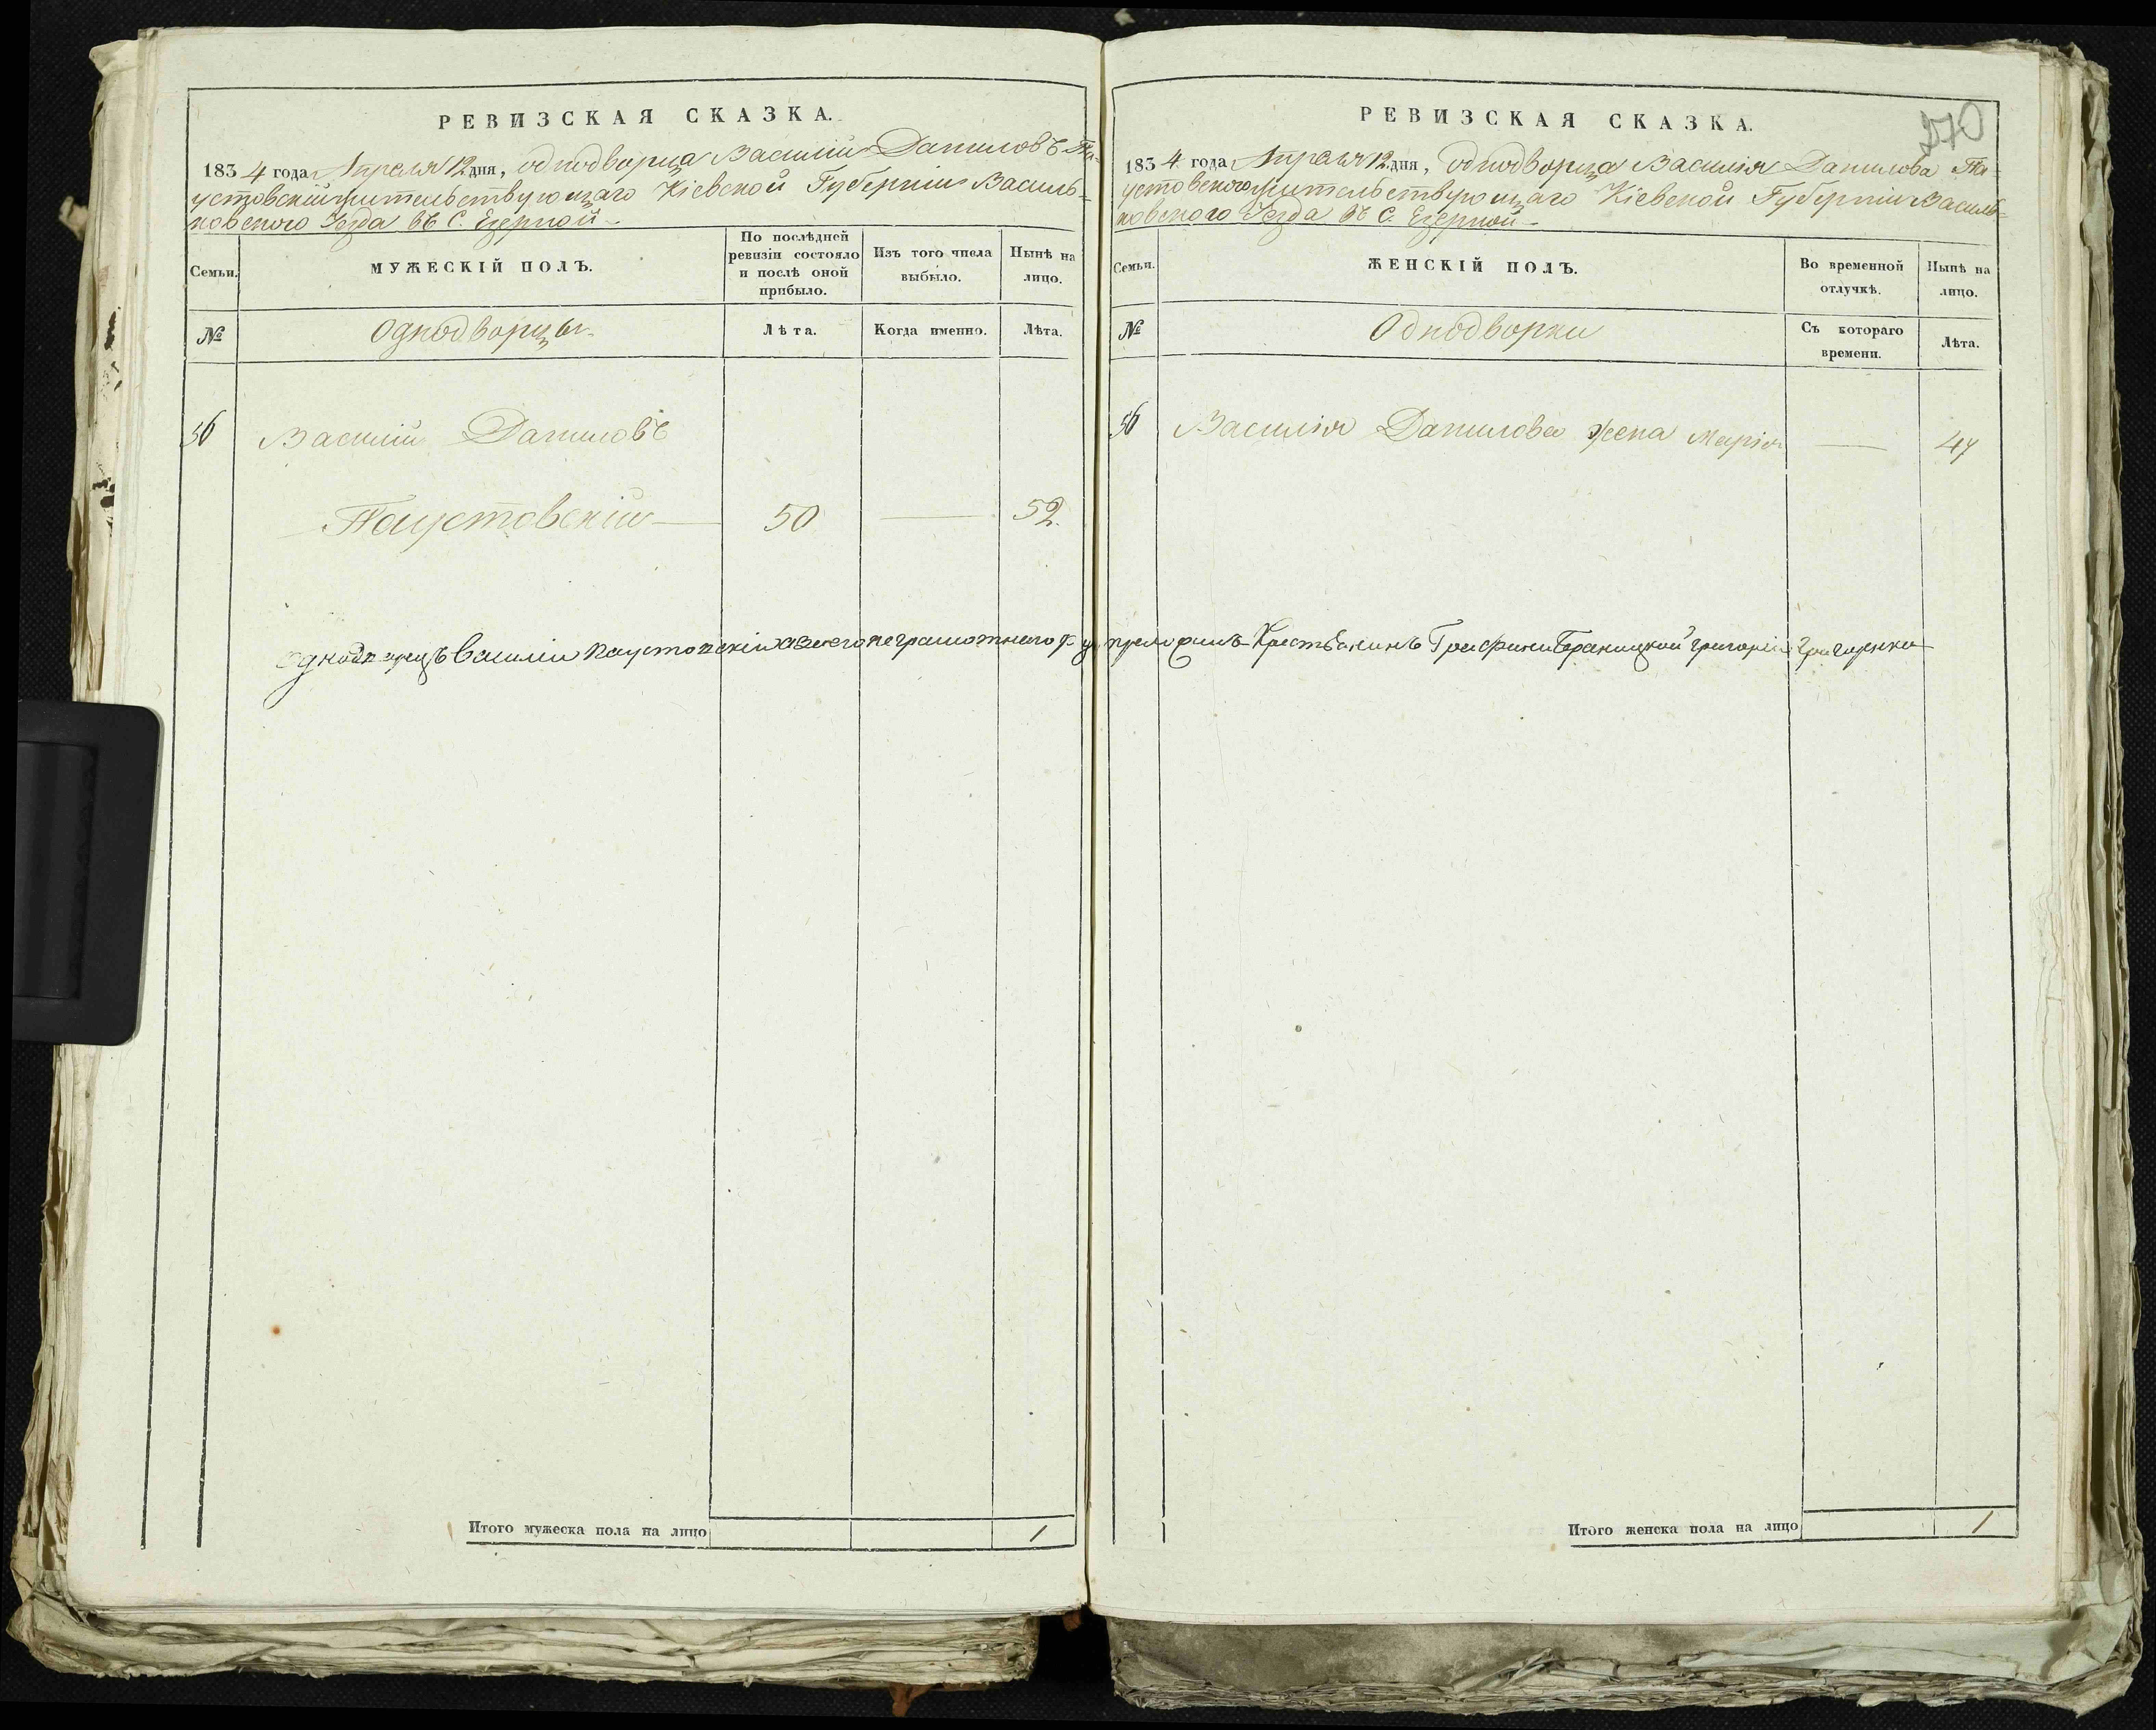 РЕВИЗСКАЯ СКАЗКА.
1834 года Апреля 12 дня, однодворца Василій Даниловъ Па-
устовскій жительствующаго Кіевской Губерніи Василь-
ковского Уезда въ С. Езерной
Семьи.
МУЖЕСКІЙ ПОЛЪ.
По послѣдней ревизіи состояло и послѣ оной прибыло.
Изъ того числа выбыло.
Нынѣ на лицо.
№
Однодворцы
Лѣта.
Когда именно.
Лѣта.
56 Василій Даниловъ
Паустовскій — 50 — 52.
Итого мужеска пола на лицо 1
270
РЕВИЗСКАЯ СКАЗКА.
1834 года Апреля 12 дня, однодворца Василія Данилова Па-
устовского жительствующаго Кіевской Губерніи Василь-
ковского Уезда въ С. Езерной
Семьи.
ЖЕНСКІЙ ПОЛЪ.
Во временной отлучкѣ.
Нынѣ на лицо.
№
Однодворки
Съ котораго времени.
Лѣта.
56 Василія Данилова жена Марія — 47
однодворецъ василій паустовскій авместо неграмотного руку приложилъ Крестьанинъ Графини Браницкой григорій григоренко
Итого женска пола на лицо 1